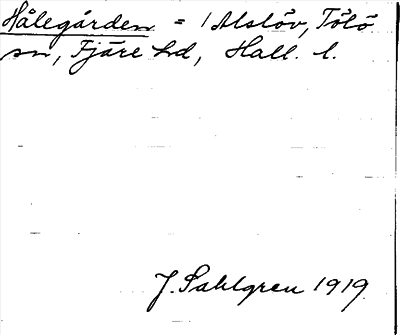 Hålegården = 1 Alslöv, Tölö
sn, Fjäre hd, Hall. l.
J. Sahlgren 1919